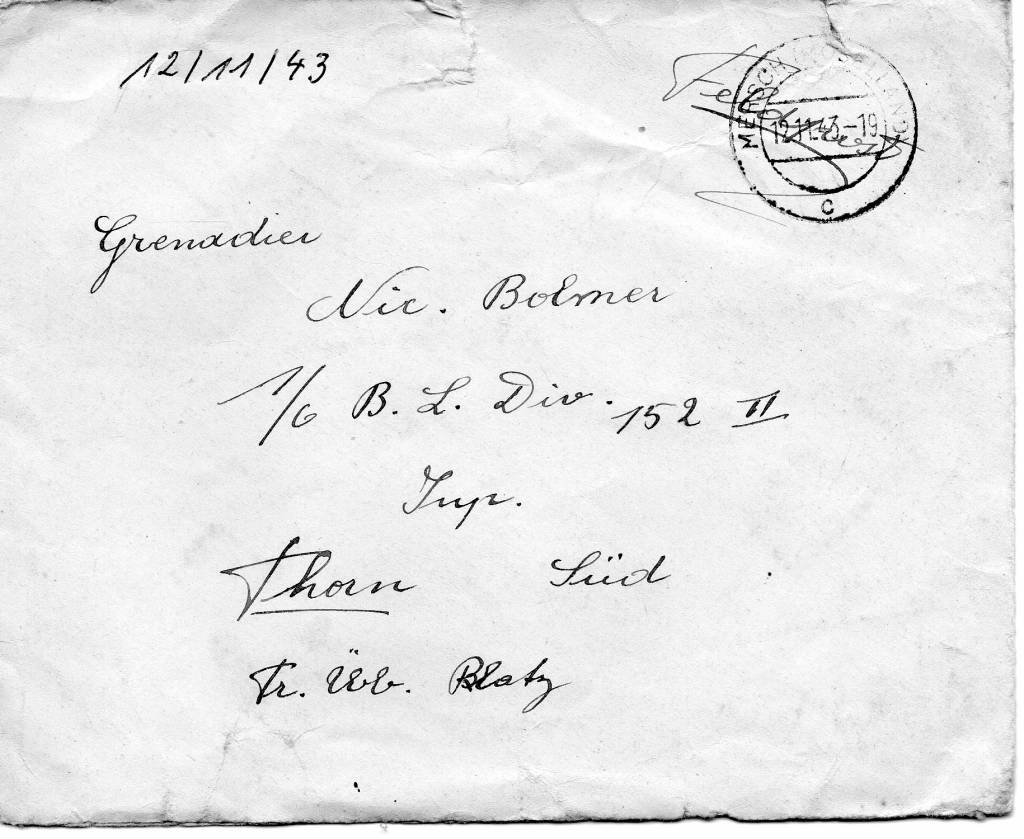 12/11/43
Feldpost
MERSCH (MOSELLAND)
12.11.43-19
c
Grenadier
Nic. Bolmer
1/6 B. L. Div. 152 II
Thorn Süd
Tr. Üb. Blatz